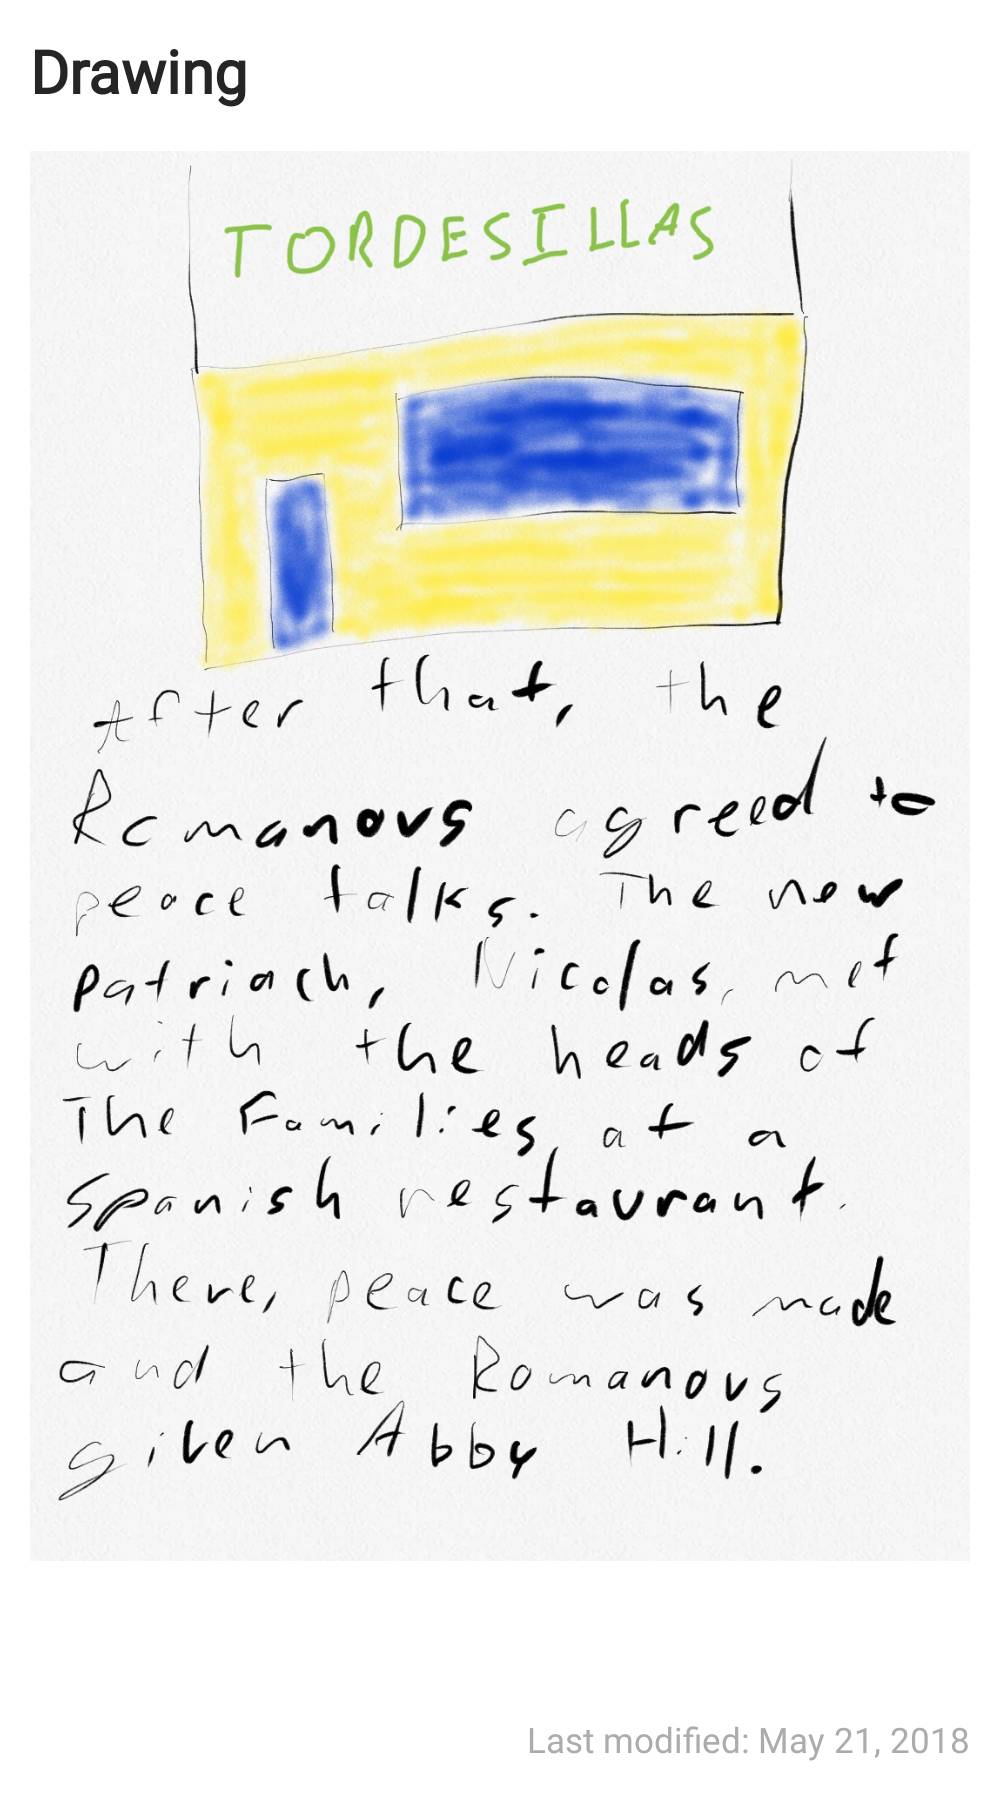 Drawing
TORDESILLAS
After that, the
Romanovs agreed to
peace talks. The new
patriach, Nicolas, met
with the heads of
The Families, at a
Spanish restaurant.
There, peace was made
and the Romanovs
given Abby Hill.
Last modified: May 21, 2018